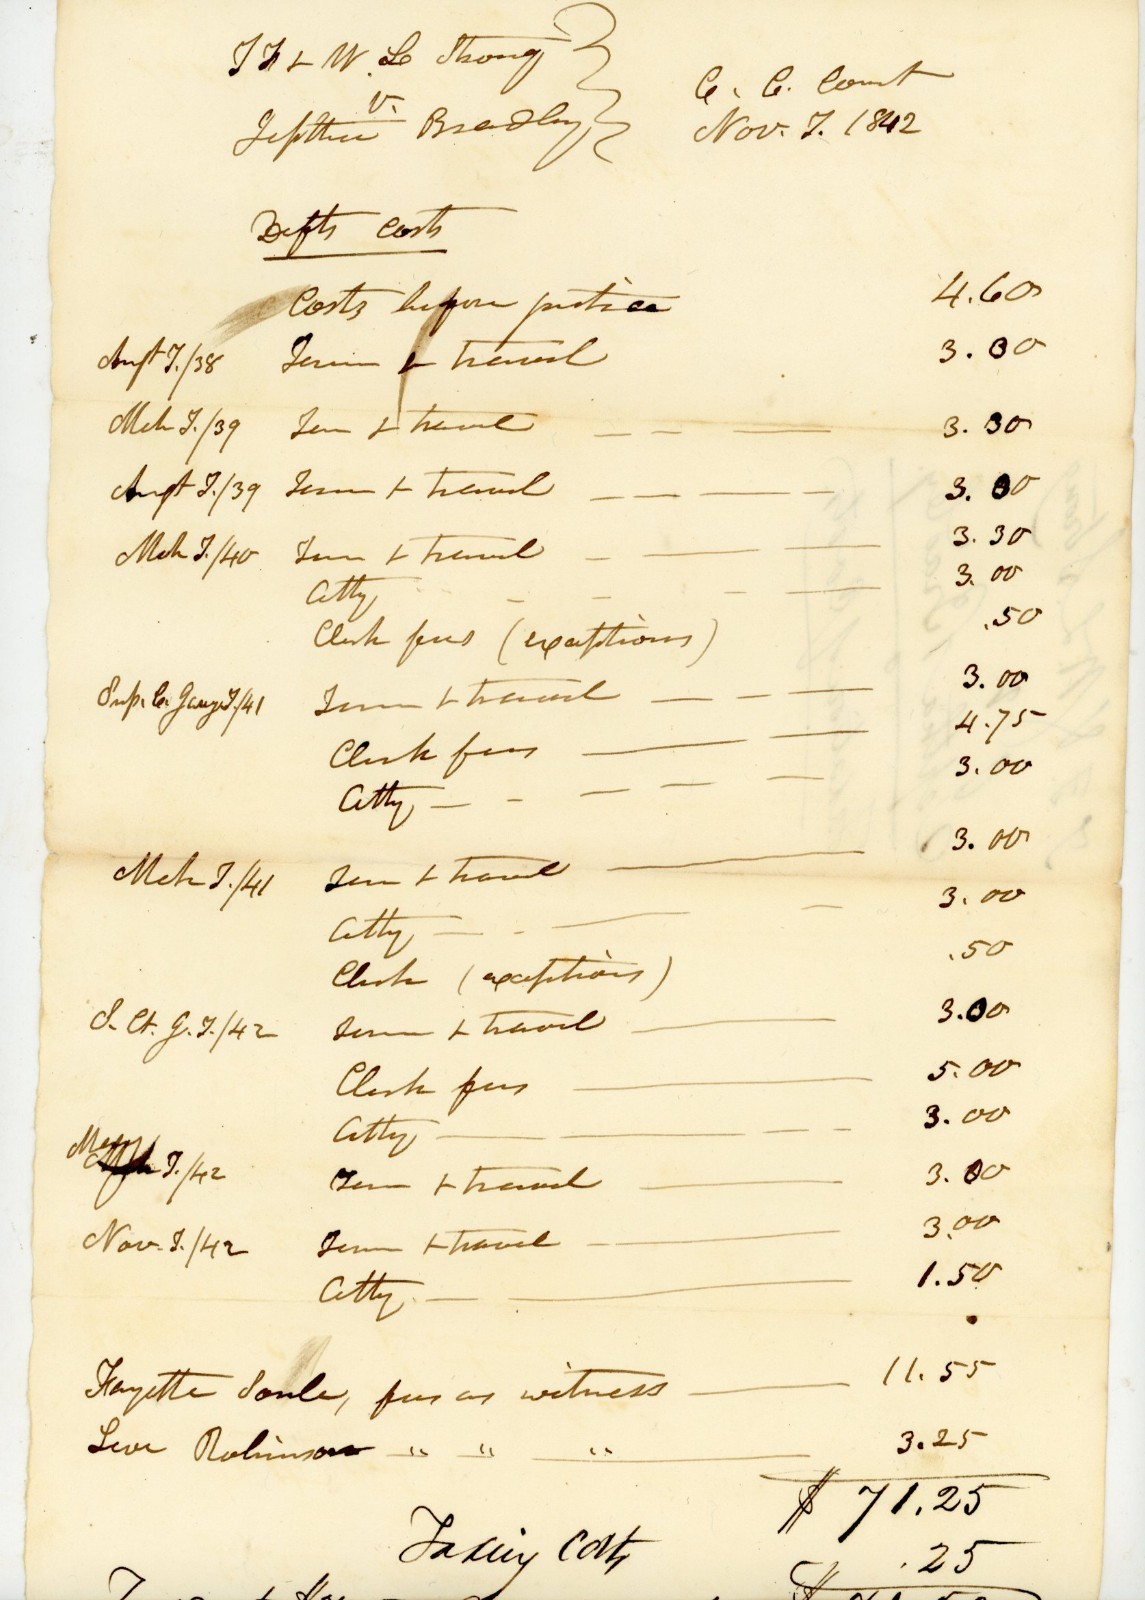 T H & W. L Strong
v.
Jepthia Bradley
C. C. Court
Nov. T. 1842
Defts Costs
Costs before justice 4.60
Augt T./38 Term & travel 3.30
Mch T./39 Term & travel 3.30
Augt T./39 Term & travel 3.00
Mch T./40 Term & travel 3.30
Atty 3.00
Clerk fees (exceptions) .50
Sup. C. Jany T./41 Term & travel 3.00
Clerk fees 4.75
Atty 3.00
Mch T./41 Term & travel 3.00
Atty 3.00
Clerk (exceptions) .50
S. Ct. J. T./42 Term & travel 3.00
Clerk fees 5.00
Atty 3.00
May T./42 Term & travel 3.00
Nov. T./42 Term & travel 3.00
Atty. 1.50
Fayette Soule, fees as witness 11.55
Robinson " " " 3.25
$ 71.25
Taxing Costs .25